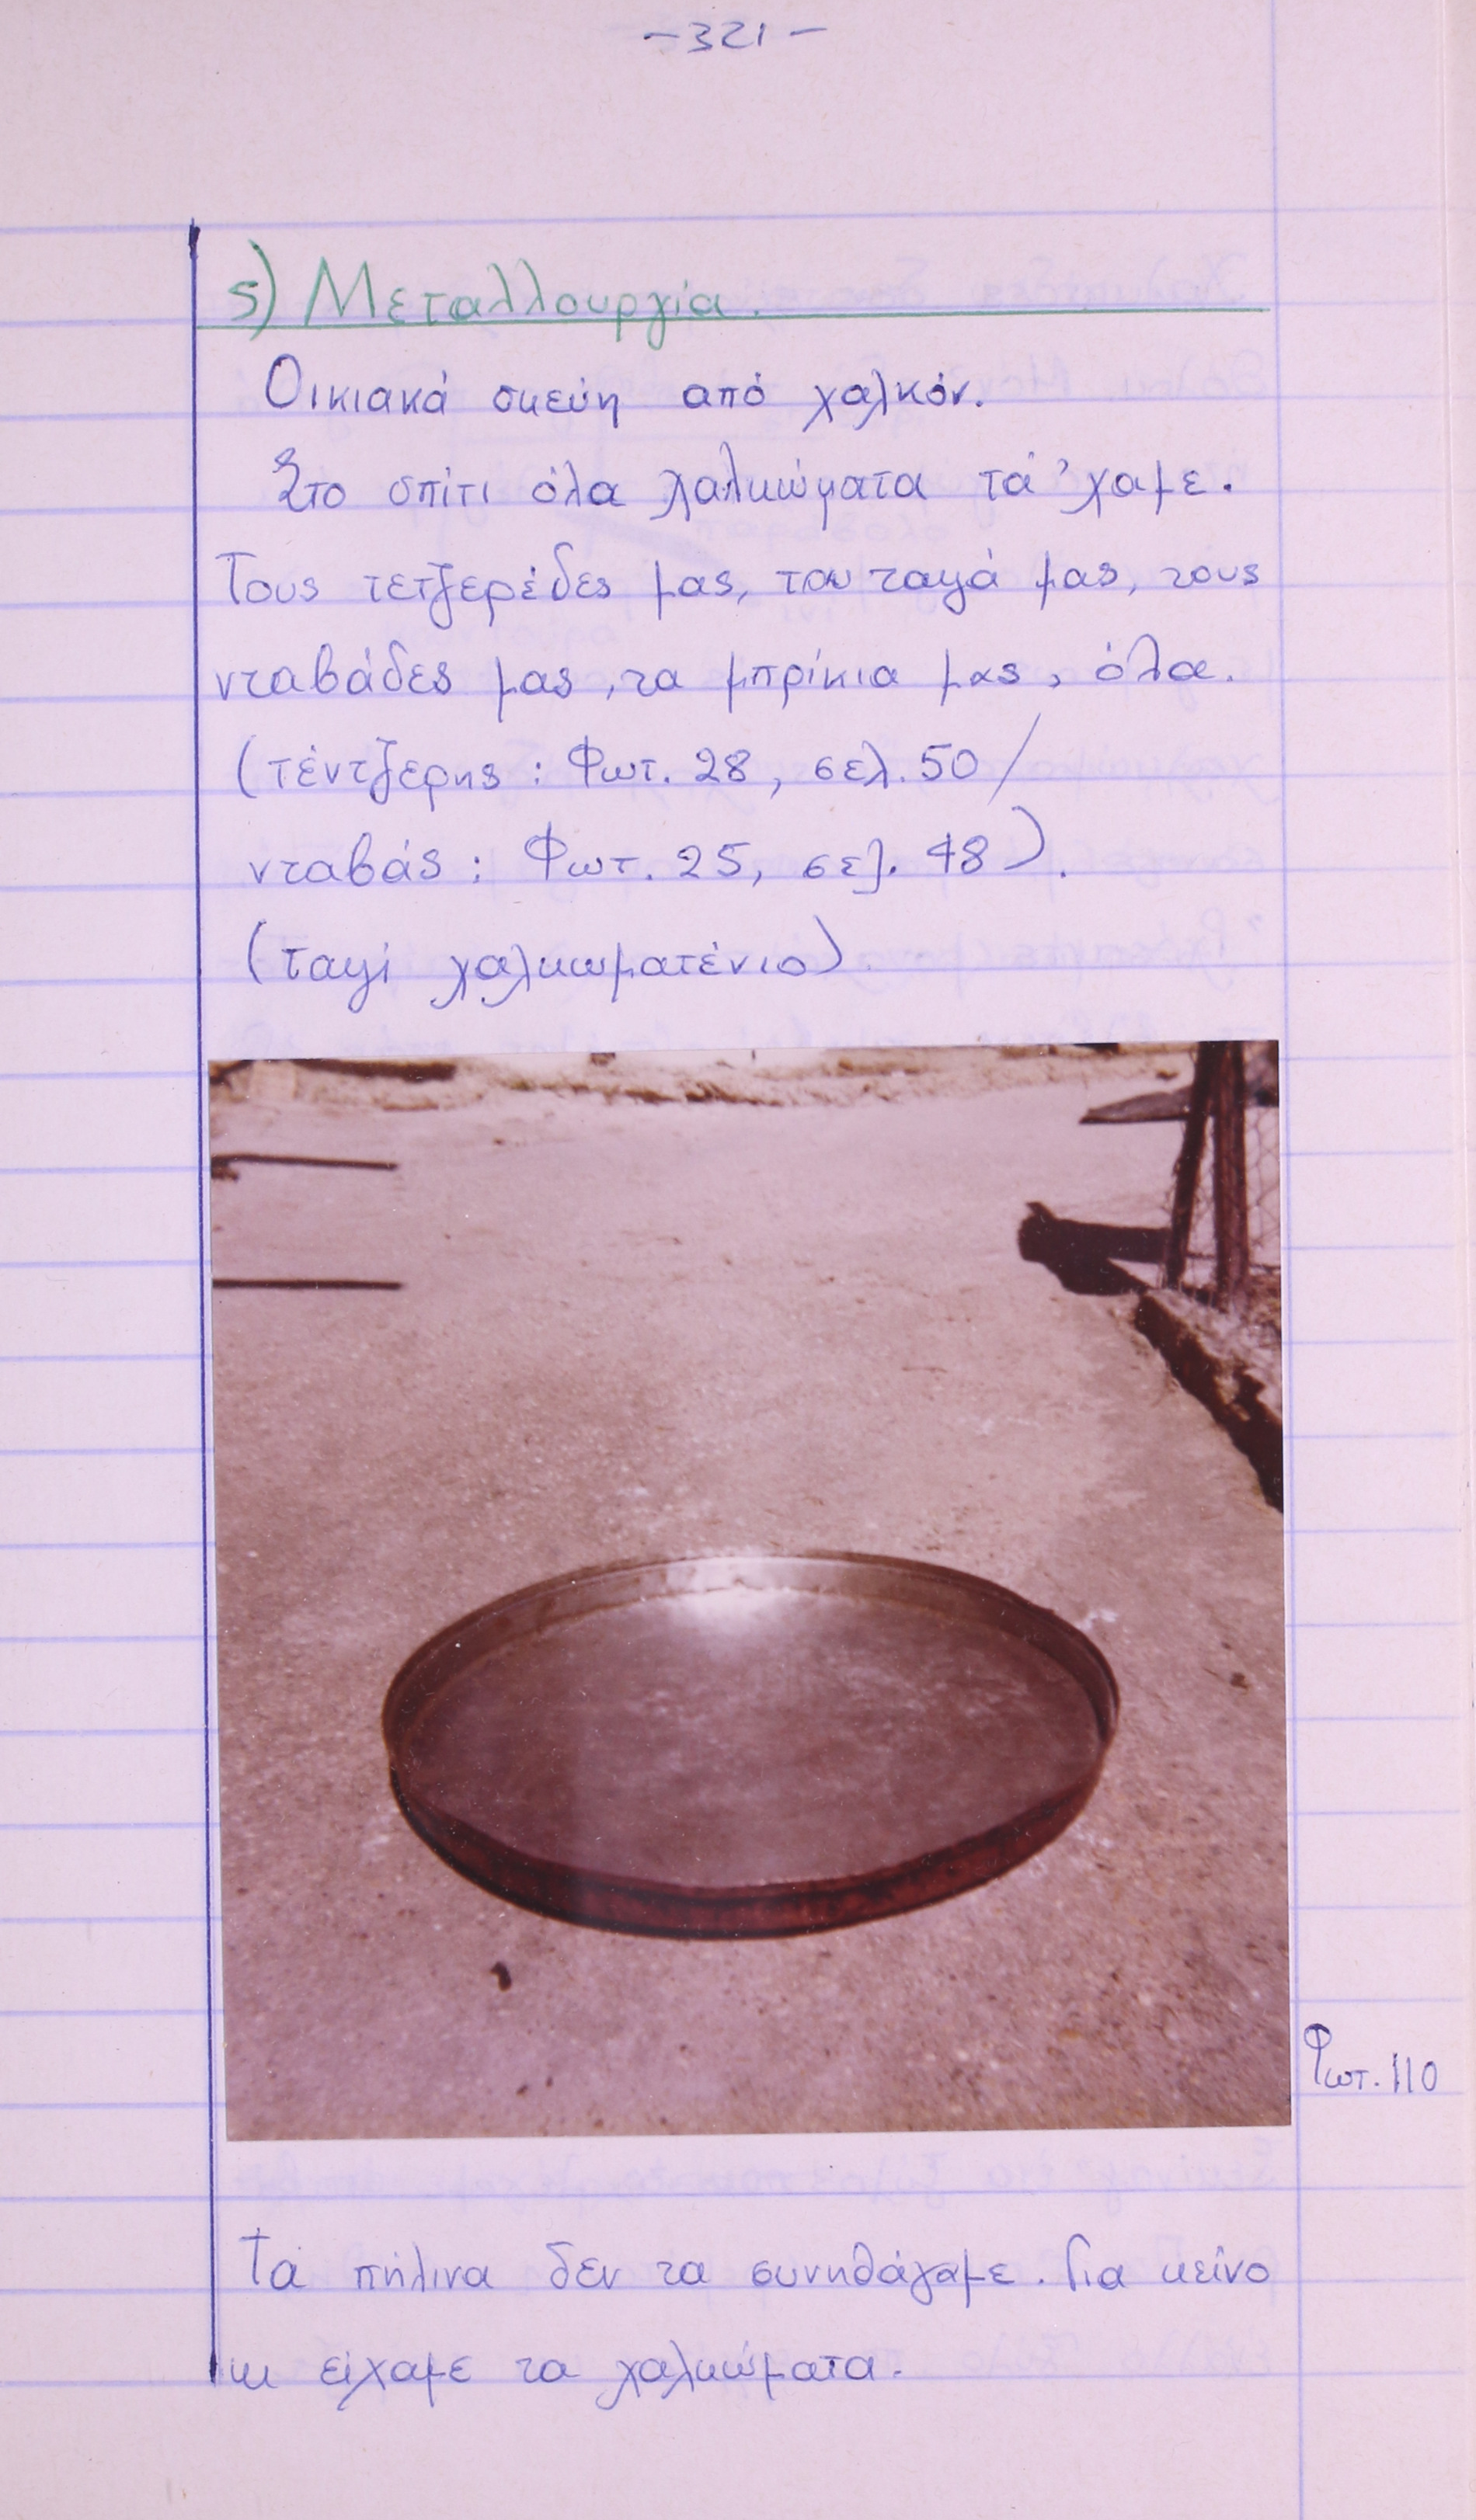 -321-
5) Μεταλλουργία.
Οικιακά σκεύη από χαλκόν.
Στο σπίτι όλα χαλκώματα τα 'χαμε.
Τους τετζερέδες μας, του ταψά μας, τους
νταβάδες μας, τα μπρίκια μας, όλα.
(τέντζερης: Φωτ. 28, σελ. 50/
νταβάς: Φωτ. 25, σελ. 48).
(ταψί χαλκωματένιο).
Φωτ. 110
Τα πήλινα δεν τα συνηθάγαμε. Για κείνο
κι είχαμε τα χαλκώματα.